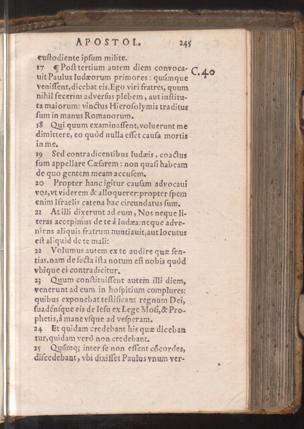 APOSTOL. 245
custodiente ipsum milite.
17 ¶ Post tertium autem diem convoca-
vit Paulus Iudæorum primores: quúmque
venissent, dicebat eis. Ego viri fratres, quum
nihil fecerim adversus plebem, aut institu-
ta maiorum: vinctus Hierosolymis traditus
sum in manus Romanorum.
C. 40
18 Qui quum examinassent, voluerunt me
dimittere, eo quòd nulla esset causa mortis
in me.
19 Sed contradicentibus Iudæis, coactus
sum appellare Cæsarem: non quasi habeam
de quo gentem meam accusem.
20 Propter hanc igitur causam advocaui
vos, vt viderem & alloquerer: propter spem
enim Israelis catena hac circundatus sum.
21 At illi dixerunt ad eum, Nos neque li-
teras accepimus de te à Iudæa: neque adve-
niens aliquis fratrum nuntiauit, aut locutus
est aliquid de te mali:
22 Volumus autem ex te audire quæ sen-
tias. nam de secta ista notum est nobis quòd
vbique ei contradicitur.
23 Quum constituissent autem illi diem,
venerunt ad eum in hospitium complures:
quibus exponebat testificans regnum Dei,
suadénsque eis de Iesu ex Lege Mosi, & Pro-
phetis, à mane vsque ad vesperam.
24 Et quidam credebant his quæ diceban
tur, quidam verò non credebant.
25 Quúmq; inter se non essent cōcordes,
discedebant, vbi dixisset Paulus vnum ver-